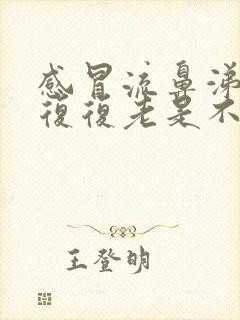 感冒流鼻涕
復復老是不
王登明